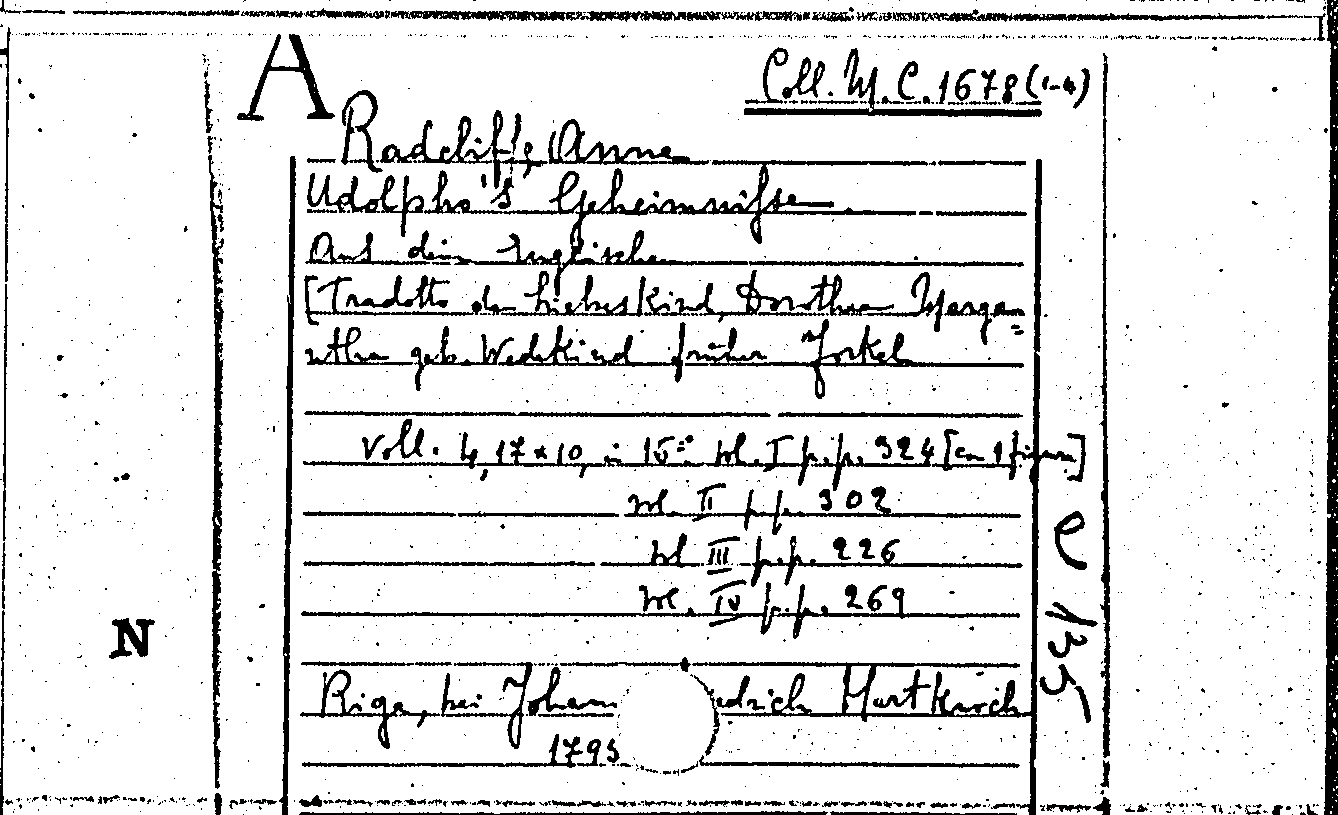 A
Coll. M. C. 1678 (1-4)
Radcliffe, Anne
Udolpho's Geheimnisse.
Aus dem Englische
[Tradotto da Liebeskind, Dorothea Margar=
etha geb. Wedekind früher Forkel
Voll. 4, 17 x 10, in 15° vol. I p.p. 324 [con 1 figura]
vol. II p.p. 302
vol III p.p. 226
vol. IV p.p. 269
N
e 135
Riga, bei Johann edrich Hartknoch
1795